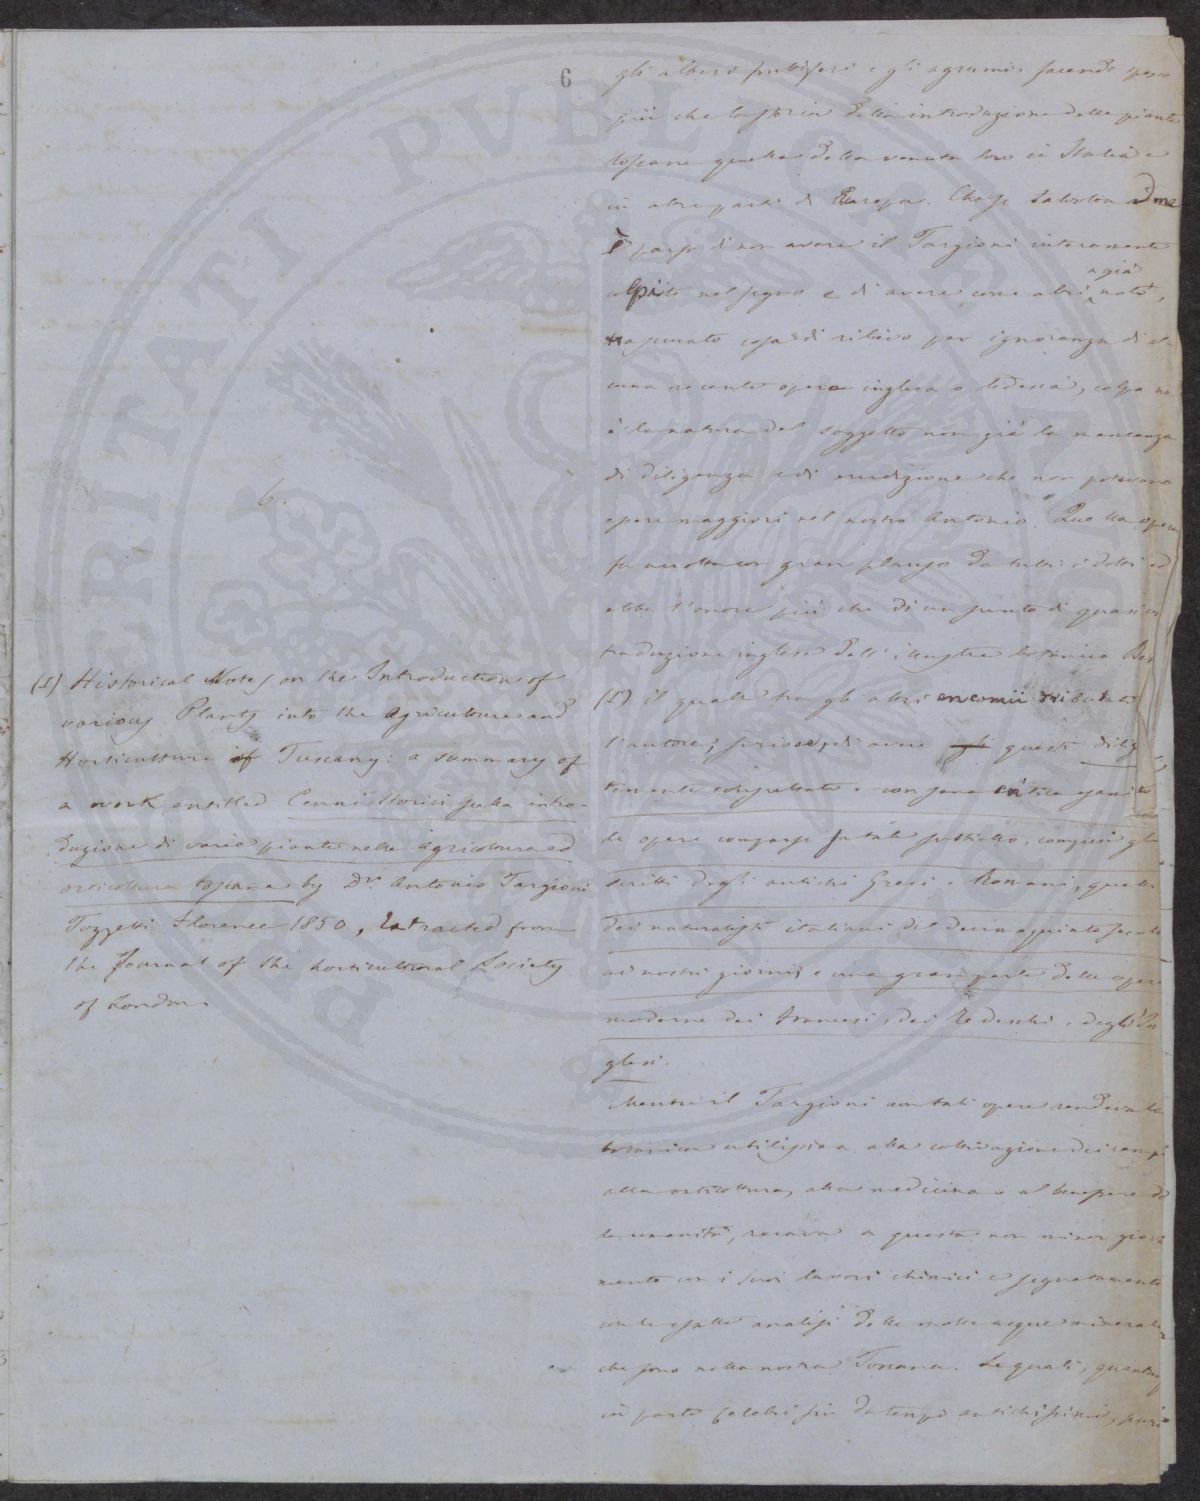 6
gli alberi fruttiferi e gli agrumi. facendo spesso
più che la storia della introduzione delle piante
toscane quella della venuta loro in Italia e
in altre parti di Europa. Che se talvolta a me
è parso di non avere il Targioni interamente
colpito nel segno e di avere, come altri già notò,
trascurato cosa di rilievo per ignoranza di al
cuna recente opera inglese o tedesca, colpa ne
è la natura del soggetto non già la mancanza
di diligenza e di erudizione che non potevano
essere maggiori nel nostro Antonio. Quella opera
fu accolta con gran plauso da tutti i dotti ed
ebbe l'onore più che di un sunto di quasi una
traduzione inglese dell'illustre botanico
(1) il quale tra gli altri encomii tributati
l'autore, scrisse, di avere questi
temente compulsato e con sana critica esaminato
le opere comparse su tale subbietto, compresi gli
scritti degli antichi Greci e Romani, quelli
dei naturalisti italiani del decimoquinto secolo
ai nostri giorni, e una gran parte delle opere
moderne dei francesi, dei Tedeschi e degli In
glesi.
Mentre il Targioni con tali opere rendeva la
botanica utilissima alla coltivazione dei campi
alla orticoltura, alla medicina e al benessere del
la umanità, recava a questa non minor giova
mento con i suoi lavori chimici e segnatamente
con le esatte analisi delle molte acque minerali
che sono nella nostra Toscana. Le quali, quantunq
in parte celebri fin da tempi antichissimi, pure
6.
(1) Historical Notes on the Introduction of
various Plants into the Agriculture and
Horticulture of Tuscany: a summary of
a work entitled Cenni storici sulla intro-
duzione di varie piante nella agricoltura ed
orticoltura toscana by Dr. Antonio Targioni
Tozzetti Florence 1850, Extracted from
the Journal of the horticultural Society
of London.
PERITATI PVBLICAE